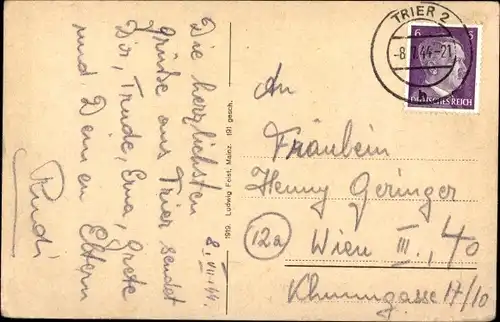 TRIER 2
-8.7.44-21
b
6
DEUTSCHES REICH
8. VII. 44.
Die herzlichsten
Grüße aus Trier sendet
Dir, Trude, Erna, Grete
und Deinen Eltern
Rudi
1919. Ludwig Feist, Mainz. 191 gesch.
An
Fräulein
Henny Geringer
12a
Wien III., 40
Khunngasse 17/10